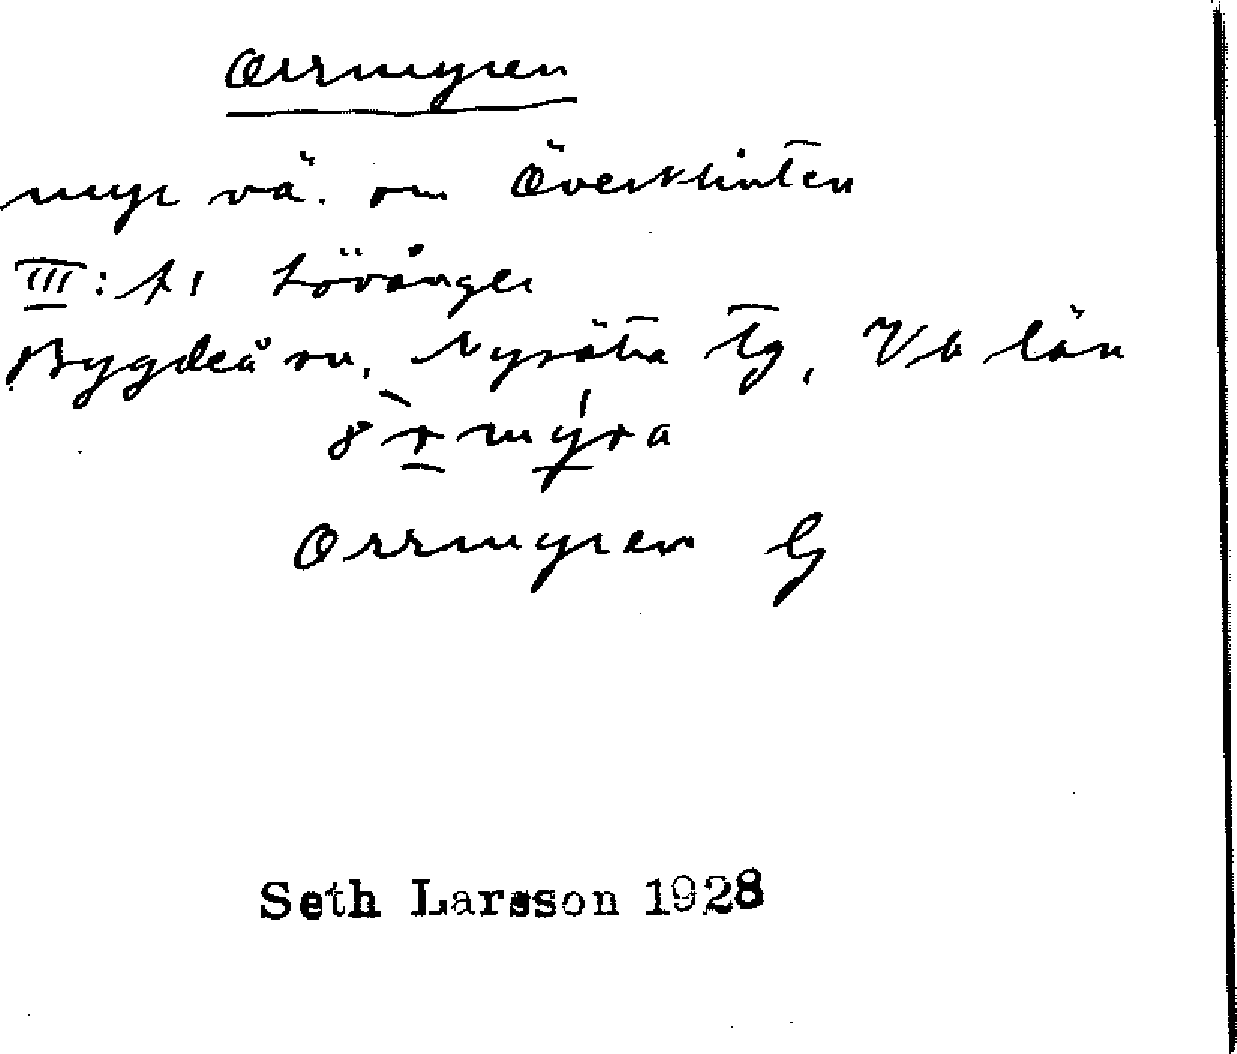 Orrmyren
myr vä. om Överklinten
III: f1 Lövånger
Bygdeå sn, Nysätra tg, Vb län
Orrmyren G
Seth Larsson 1928